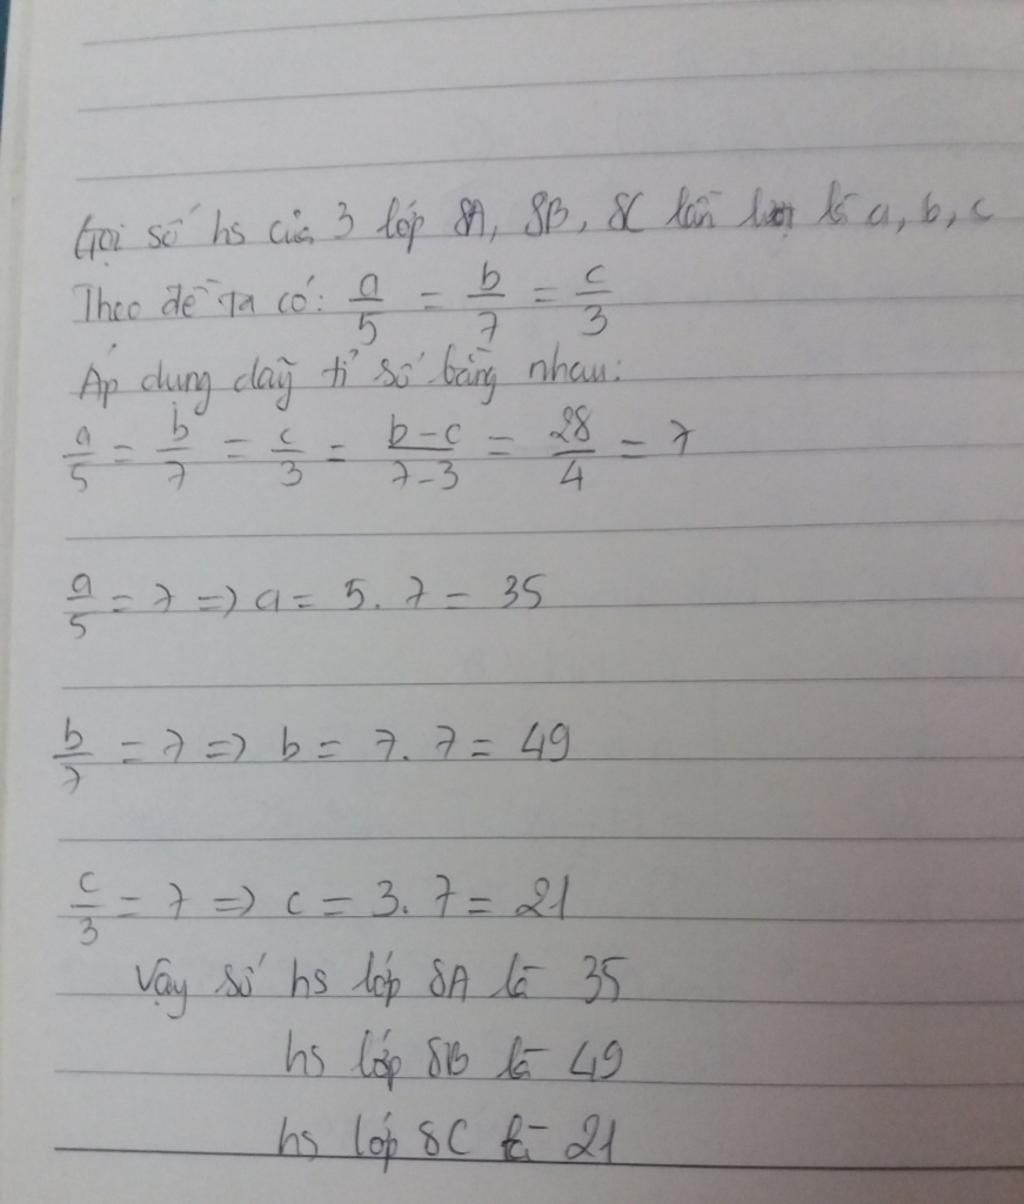 Gọi số hs của 3 lớp 8A, 8B, 8C lần lượt là a, b, c
Theo đề ta có: a/5 = b/7 = c/3
Áp dụng dãy tỉ số bằng nhau:
a/5 = b/7 = c/3 = b-c/7-3 = 28/4 = 7
a/5 = 7 => a = 5. 7 = 35
b/7 = 7 => b = 7. 7 = 49
c/3 = 7 => c = 3. 7 = 21
Vậy số hs lớp 8A là 35
hs lớp 8B là 49
hs lớp 8C là 21